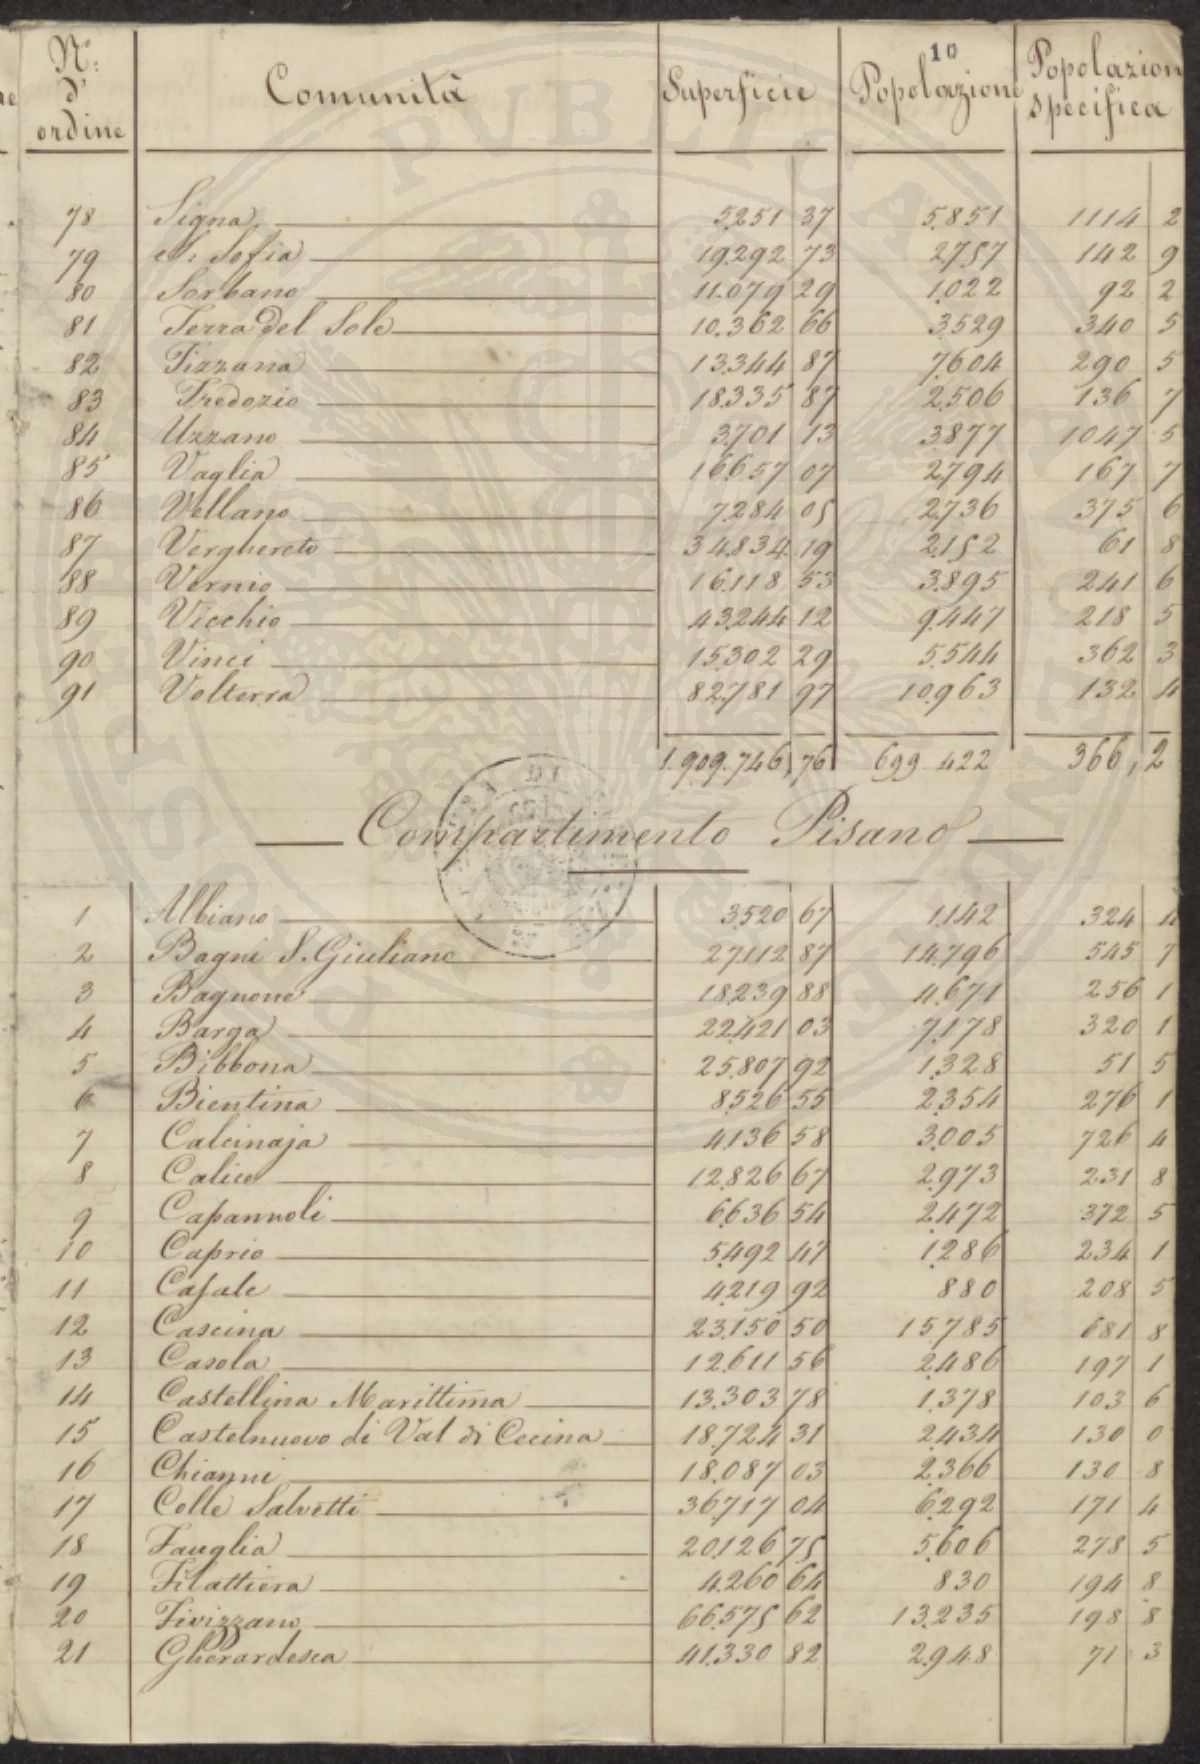 10
N.º d' ordine Comunità Superficie Popolazione Popolazion specifica
78 Signa 5.251 37 5.851 1114 2
79 S. Sofia 19.292 73 2.757 142 9
80 Sorbano 11.079 29 1.022 92 2
81 Terra del Sole 10.362 66 3.529 340 5
82 Tizzana 13.344 87 7.604 290 5
83 Tredozio 18.335 87 2.506 136 7
84 Uzzano 3.701 13 3.877 1047 5
85 Vaglia 16.657 07 2.794 167 7
86 Vellano 7.284 05 2.736 375 6
87 Verghereto 34.834 19 2.152 61 8
88 Vernio 16.118 53 3.895 241 6
89 Vicchio 43.244 12 9.447 218 5
90 Vinci 15.302 29 5.544 362 3
91 Volterra 82.781 97 10.963 132 4
1.909.746,76 699.422 366,2
Compartimento Pisano
1 Albiano 3.520 67 1.142 324 4
2 Bagni S. Giuliano 27.112 87 14.796 545 7
3 Bagnone 18.239 88 4.671 256 1
4 Barga 22.421 03 7.178 320 1
5 Bibbona 25.807 92 1.328 51 5
6 Bientina 8.526 55 2.354 276 1
7 Calcinaja 4.136 58 3.005 726 4
8 Calice 12.826 67 2.973 231 8
9 Capannoli 6.636 54 2.472 372 5
10 Caprio 5.492 47 1.286 234 1
11 Casale 4.219 92 880 208 5
12 Cascina 23.150 50 15.785 681 8
13 Casola 12.611 56 2.486 197 1
14 Castellina Marittima 13.303 78 1.378 103 6
15 Castelnuovo di Val di Cecina 18.724 31 2.434 130 0
16 Chianni 18.087 03 2.366 130 8
17 Colle Salvetti 36.717 04 6.292 171 4
18 Fauglia 20.126 75 5.606 278 5
19 Filattiera 4.260 64 830 194 8
20 Fivizzano 66.575 62 13.235 198 8
21 Gherardesca 41.330 82 2.948 71 3